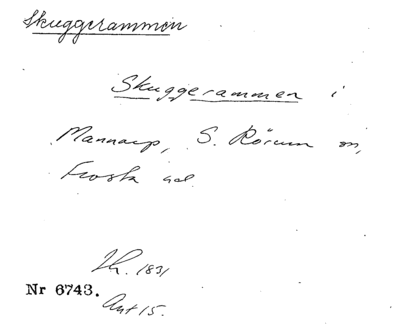 Skuggerammen
Skuggerammen i
Mannarp, S. Rörum sn,
Frosta hd.
Th. 1831
Nr 6743.
Ant 15.